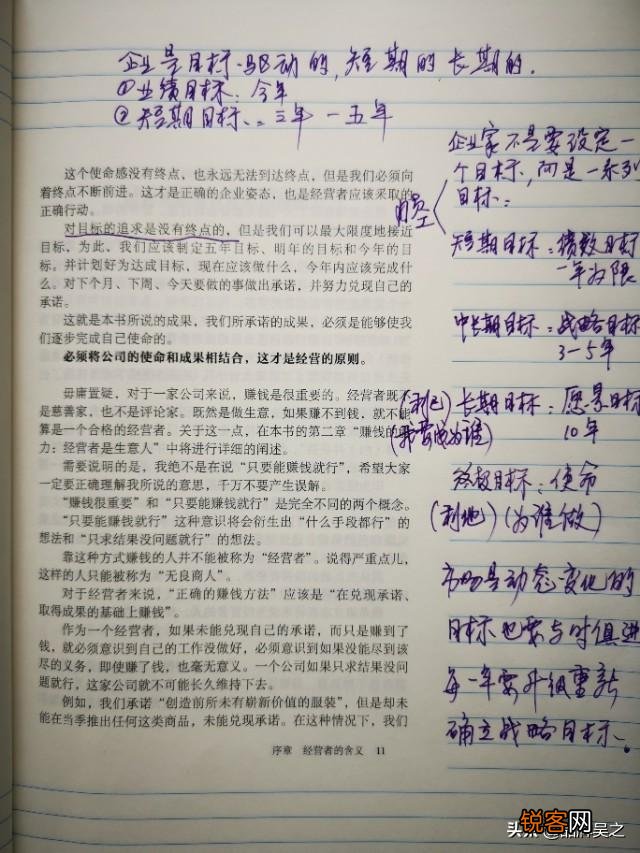 企业是目标驱动的,短期的长期的.
①业绩目标:今年
②短期目标:三年-五年
这个使命感没有终点,也永远无法到达终点,但是我们必须向
着终点不断前进。这才是正确的企业姿态,也是经营者应该采取的
正确行动。
对目标的追求是没有终点的,但是我们可以最大限度地接近
目标,为此,我们应该制定五年目标、明年的目标和今年的目
标。并计划好为达成目标,现在应该做什么,今年内应该完成什
么。对下个月、下周、今天要做的事做出承诺,并努力兑现自己的
承诺。
这就是本书所说的成果,我们所承诺的成果,必须是能够使我
们逐步完成自己使命的。
必须将公司的使命和成果相结合,这才是经营的原则。
毋庸置疑,对于一家公司来说,赚钱是很重要的。经营者既不
是慈善家,也不是评论家。既然是做生意,如果赚不到钱,就不能
算是一个合格的经营者。关于这一点,在本书的第二章“赚钱的
力:经营者是生意人”中将进行详细的阐述。
需要说明的是,我绝不是在说“只要能赚钱就行”,希望大家
一定要正确理解我所说的意思,千万不要产生误解。
“赚钱很重要”和“只要能赚钱就行”是完全不同的两个概念。
“只要能赚钱就行”这种意识将会衍生出“什么手段都行”的
想法和“只求结果没问题就行”的想法。
靠这种方式赚钱的人并不能被称为“经营者”。说得严重点儿,
这样的人只能被称为“无良商人”。
对于经营者来说,“正确的赚钱方法”应该是“在兑现承诺、
取得成果的基础上赚钱”。
作为一个经营者,如果未能兑现自己的承诺,而只是赚到了
钱,就必须意识到自己的工作没做好,必须意识到如果没能尽到该
尽的义务,即使赚了钱,也毫无意义。一个公司如果只求结果没问
题就行,这家公司就不可能长久维持下去。
例如,我们承诺“创造前所未有崭新价值的服装”,但是却未
能在当季推出任何这类商品,未能兑现承诺。在这种情况下,我们
序章 经营者的含义 11
企业家不是要设定一
个目标,而是一系列
目标:
短期目标:绩效目标
一年为限
中长期目标:战略目标
3-5年
(利己)长期目标:愿景目标
(我要成为谁) 10年
终极目标:使命
(利他)(为谁做)
市场是动态变化的
目标也要与时俱进
每一年要升级重新
确立战略目标。
锐客网